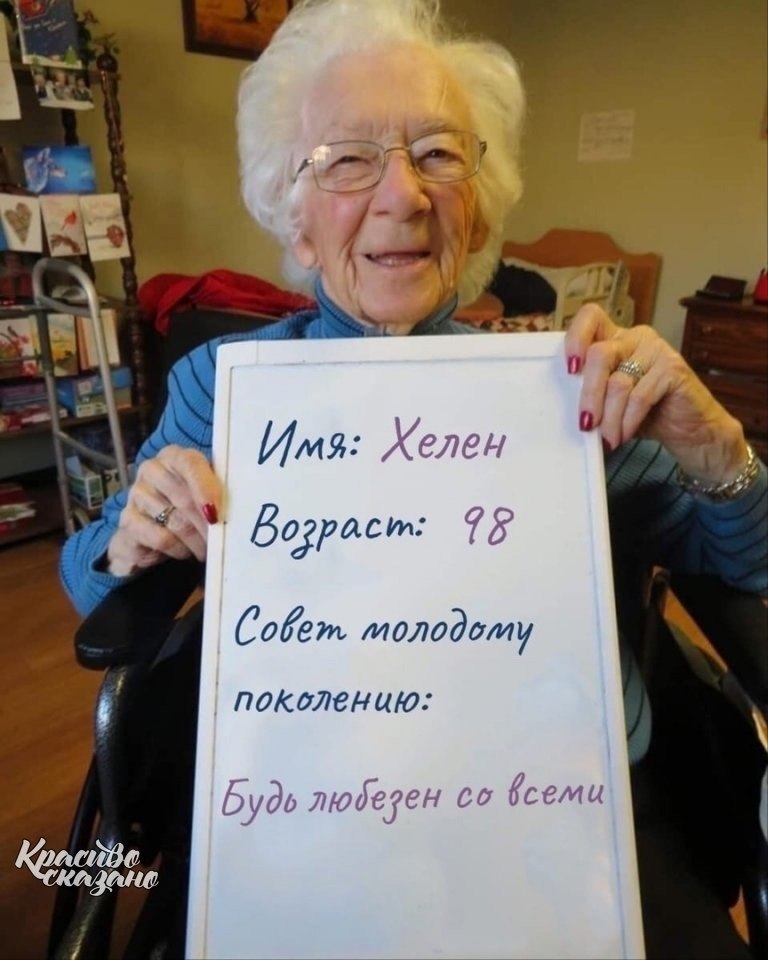 Имя: Хелен
Возраст: 98
Совет молодому
поколению:
Будь любезен со всеми
Красиво
сказано